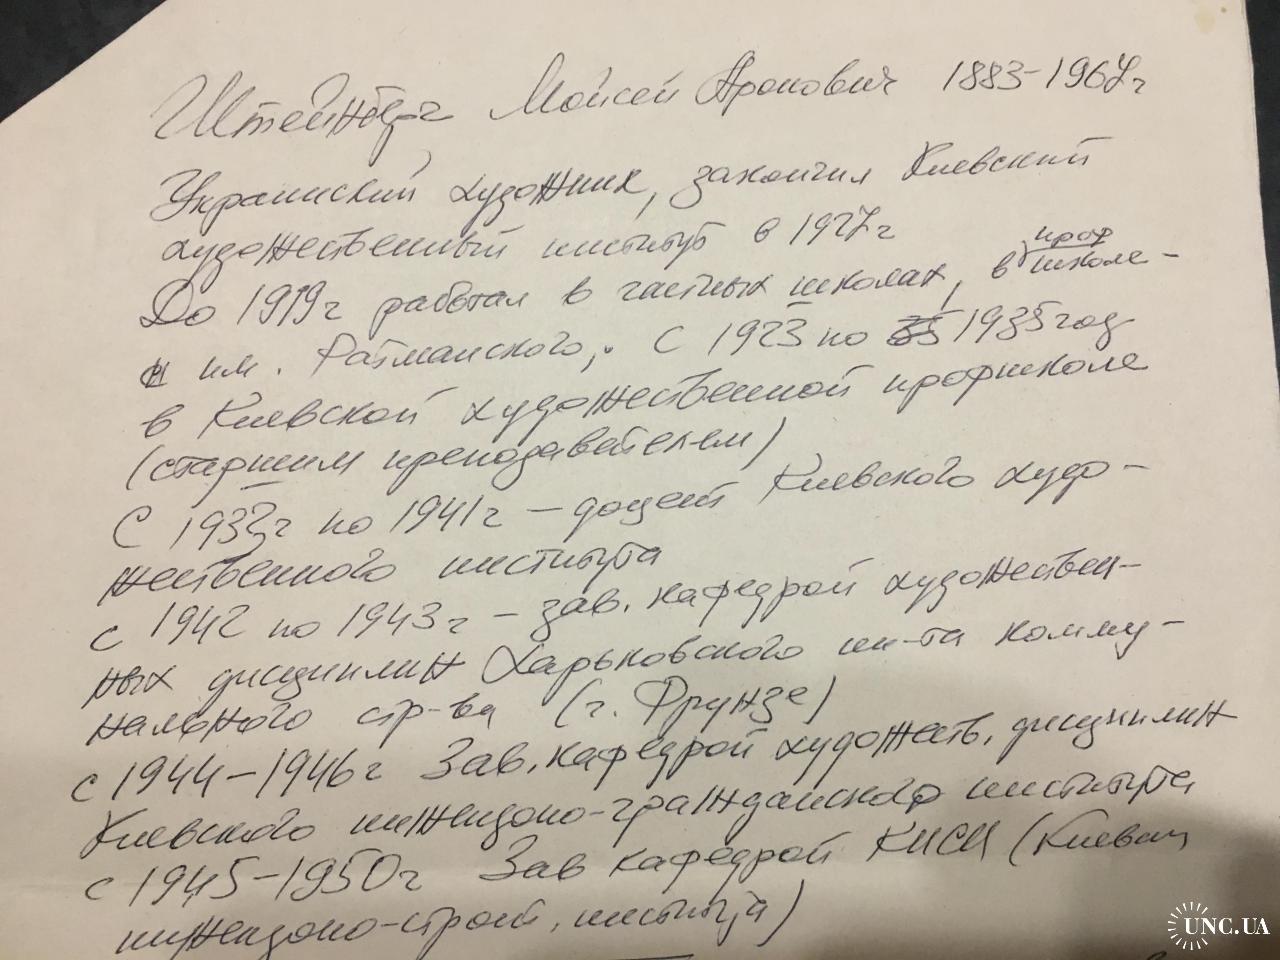 Штейнберг Мойсей Аронович 1883-1967г
Украинский художник, закончил Киевский
художественный институт в 1927г
До 1919г работал в частных школах, в проф школе -
им. Ратманского, . С 1923 по 1935 год
в Киевской художественной профшколе
(старшим преподавателем)
С 1933г по 1941г – доцент Киевского худо-
жественного института
с 1942 по 1943г – зав. кафедрой художествен-
ных дисциплин Харьковского ин-та комму-
нального стр-ва (г. Фрунзе)
с 1944-1946г Зав. кафедрой художеств. дисциплин
Киевского инженерно-гражданского института
с 1945-1950г Зав кафедрой КИСИ (Киевск
инженерно-строит. института)
UNC.UA